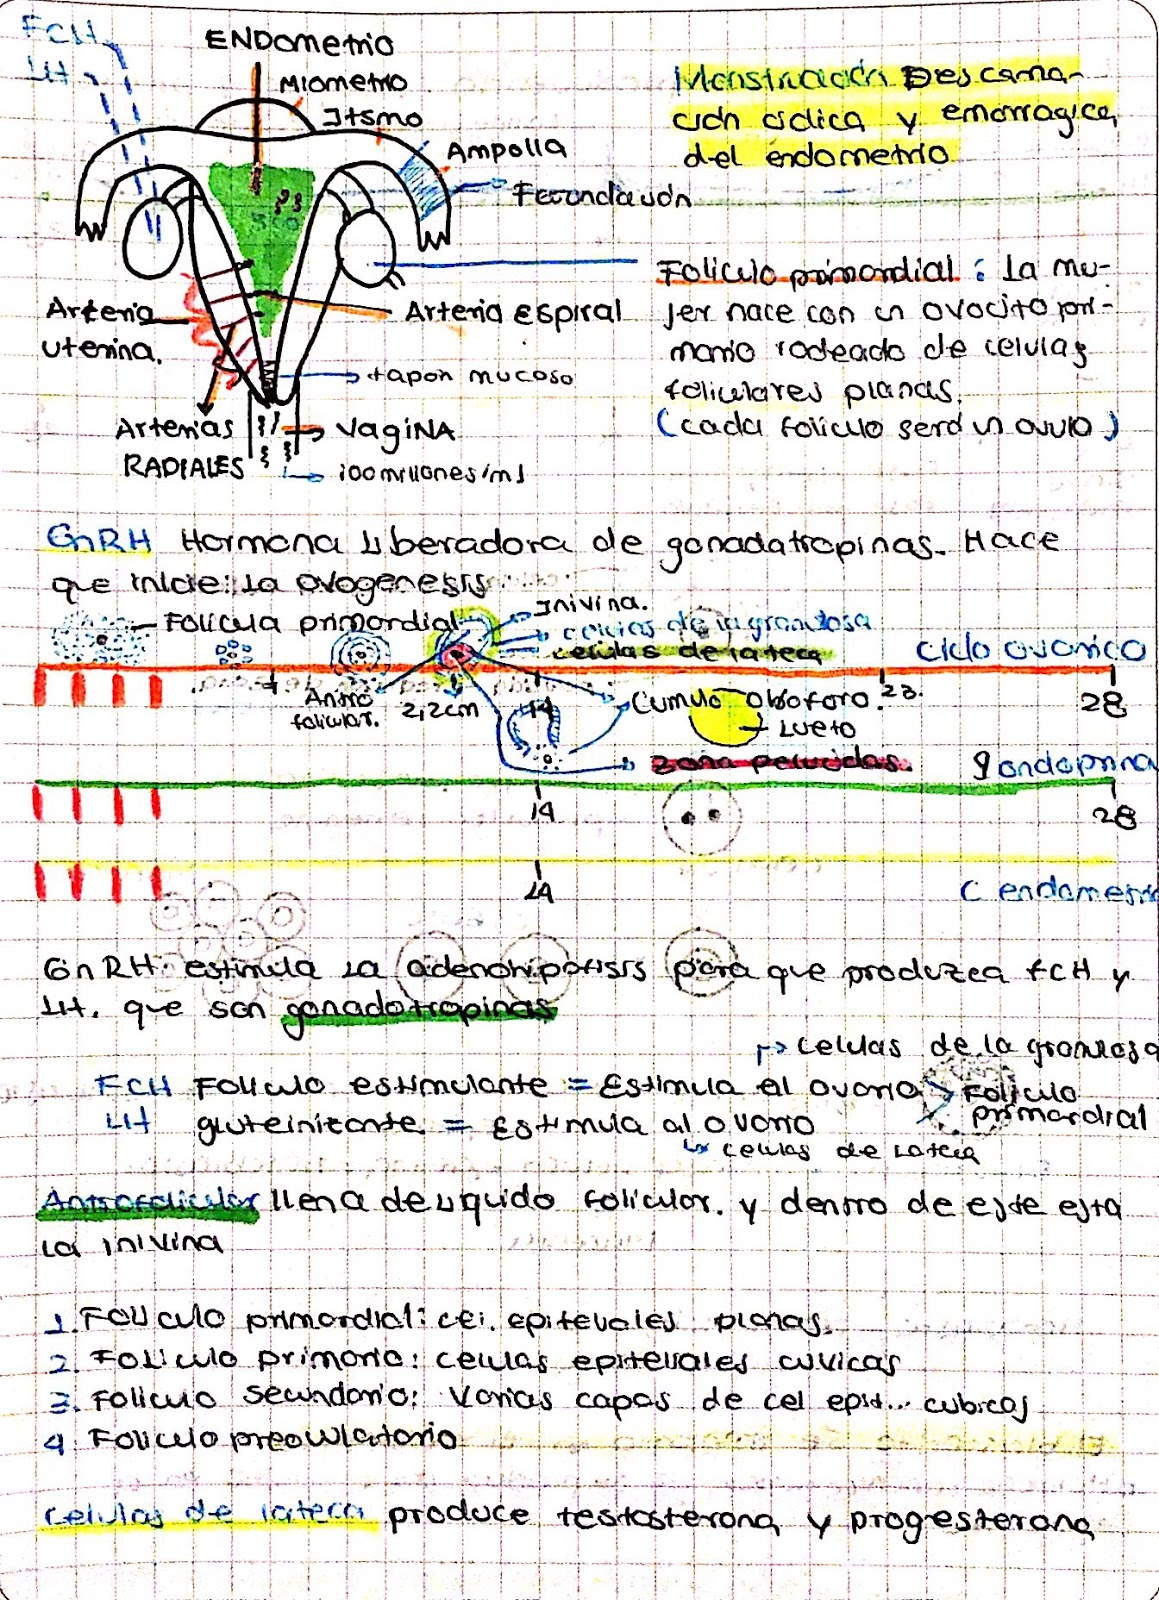 FCH
LH
ENDometrio
Miometrio
Itsmo
Ampolla
Fecondación
Arteria
uterina.
Arteria Espiral
tapon mucoso
Arterias
RADIALES
VagiNA
100millones/ml
Menstruación Descama-
ción ciclica y emorragica,
del endometrio
Foliculo primordial : La mu-
jer nace con un ovocito pri-
mario rodeado de celulas
foliculares planas.
(cada folículo será un ovulo)
GnRH Hormona liberadora de gonadatropinas. Hace
que inicie: la ovogenesis
Folicula primordial
Inivina.
celulas de la granulosa
celulas de lateca
Ciclo ovarico
Antro
folicular.
2,2cm
14
Cumulo oboforo.
23.
28
Lueto
Zona pelucidas.
gondoprina
14
28
14
C endometri
GnRH. estimula la adenohipofisis para que produzca fCH y
LH. que son gonadotropinas
celulas de la granulosa
FCH Foliculo estimulante = Estimula el ovario
Foliculo
primordial
LH gluteinizante = Estimula al ovario
celulas de lateca
Antrofolicular llena de liquido folicular. y dentro de este esta
la inivina
1. Foliculo primordial: cel. epiteliales planas.
2. Foliculo primario: celulas epiteliales cuvicas
3. Foliculo Secundario: Varias capas de cel epit... cubicas
4 Foliculo preovulatorio
Celulas de lateca produce testosterona y progesterona